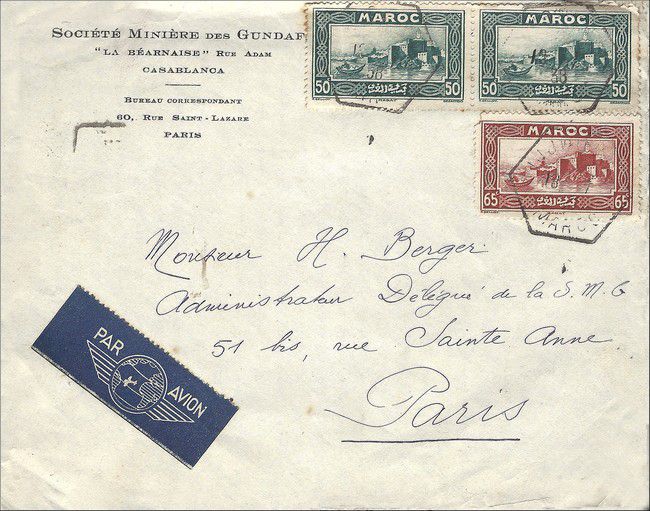 SOCIÉTÉ MINIÈRE DES GUNDAF
"LA BÉARNAISE" RUE ADAM
CASABLANCA
BUREAU CORRESPONDANT
60, RUE SAINT-LAZARE
PARIS
MAROC
50 50
MAROC
50 50
MAROC
65 65
Monsieur H. Berger
Administrateur Délégué de la S.M.G
51 bis, rue Sainte Anne.
Paris
PAR
AVION